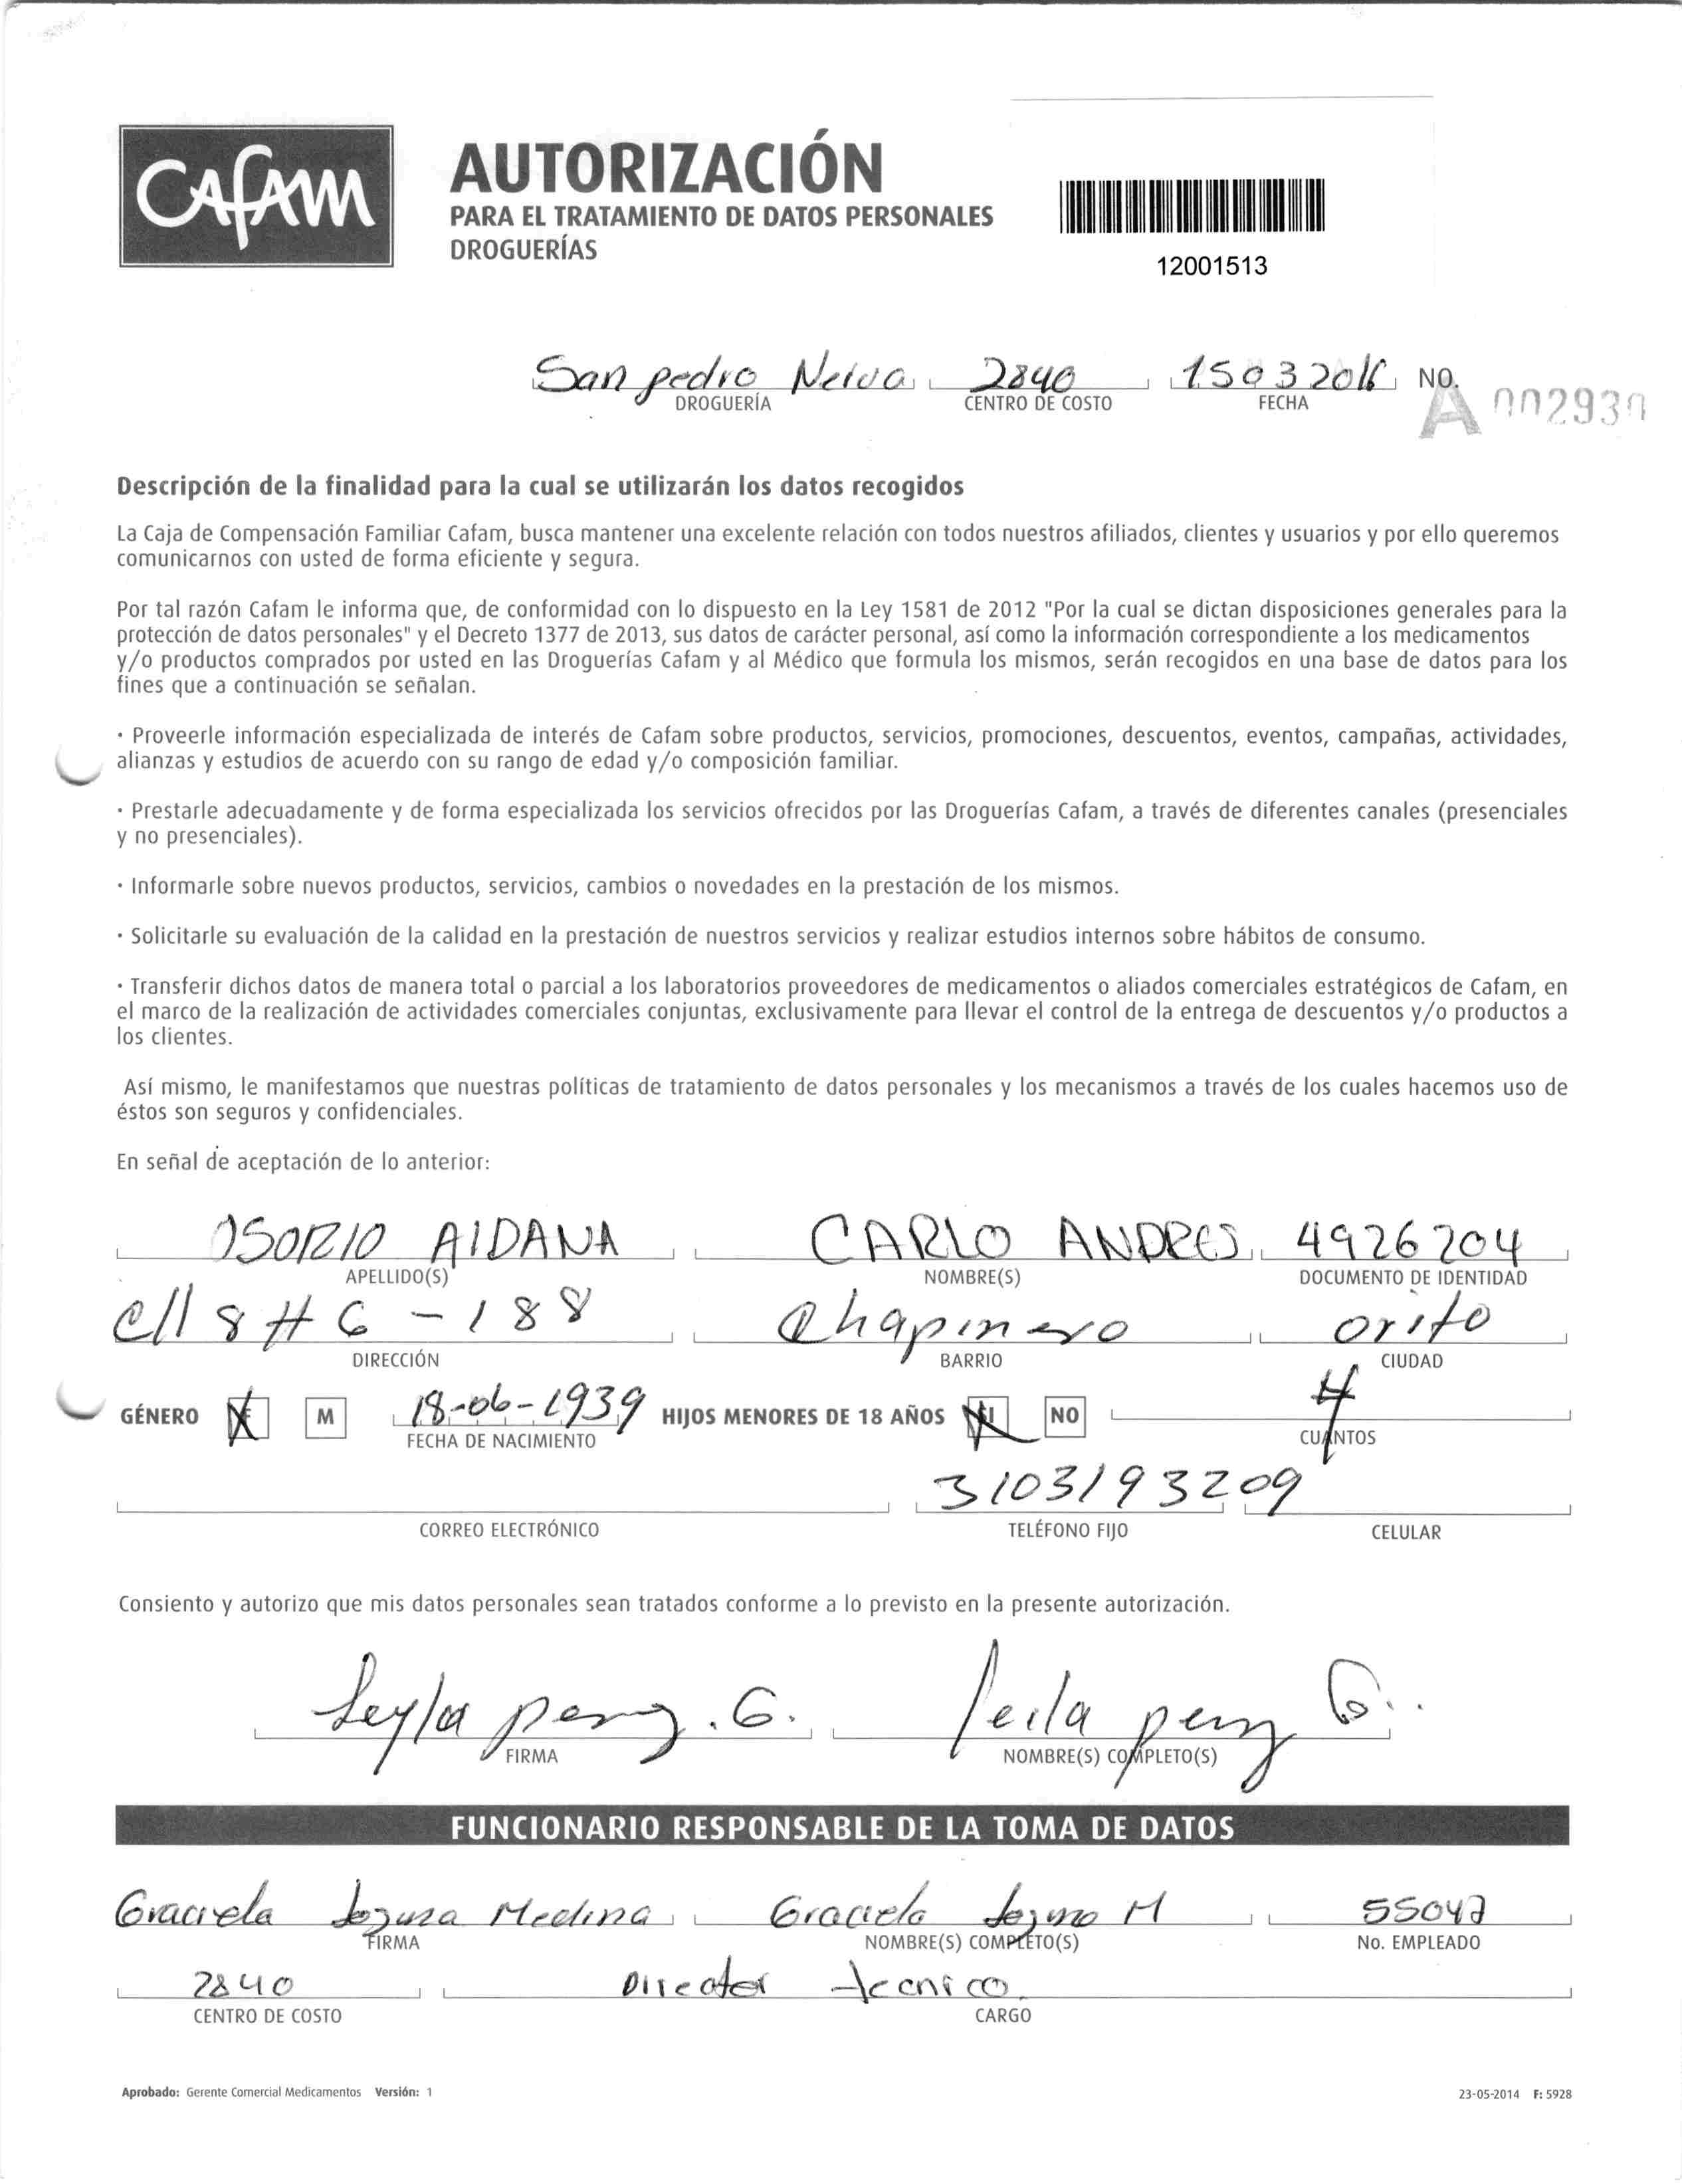 CAfAM
AUTORIZACIÓN
PARA EL TRATAMIENTO DE DATOS PERSONALES
DROGUERÍAS
12001513
San pedro Neiva 2840 15032016 NO.
DROGUERÍA CENTRO DE COSTO FECHA A 002930
Descripción de la finalidad para la cual se utilizarán los datos recogidos
La Caja de Compensación Familiar Cafam, busca mantener una excelente relación con todos nuestros afiliados, clientes y usuarios y por ello queremos
comunicarnos con usted de forma eficiente y segura.
Por tal razón Cafam le informa que, de conformidad con lo dispuesto en la Ley 1581 de 2012 "Por la cual se dictan disposiciones generales para la
protección de datos personales" y el Decreto 1377 de 2013, sus datos de carácter personal, así como la información correspondiente a los medicamentos
y/o productos comprados por usted en las Droguerías Cafam y al Médico que formula los mismos, serán recogidos en una base de datos para los
fines que a continuación se señalan.
· Proveerle información especializada de interés de Cafam sobre productos, servicios, promociones, descuentos, eventos, campañas, actividades,
alianzas y estudios de acuerdo con su rango de edad y/o composición familiar.
· Prestarle adecuadamente y de forma especializada los servicios ofrecidos por las Droguerías Cafam, a través de diferentes canales (presenciales
y no presenciales).
· Informarle sobre nuevos productos, servicios, cambios o novedades en la prestación de los mismos.
· Solicitarle su evaluación de la calidad en la prestación de nuestros servicios y realizar estudios internos sobre hábitos de consumo.
· Transferir dichos datos de manera total o parcial a los laboratorios proveedores de medicamentos o aliados comerciales estratégicos de Cafam, en
el marco de la realización de actividades comerciales conjuntas, exclusivamente para llevar el control de la entrega de descuentos y/o productos a
los clientes.
Así mismo, le manifestamos que nuestras políticas de tratamiento de datos personales y los mecanismos a través de los cuales hacemos uso de
éstos son seguros y confidenciales.
En señal de aceptación de lo anterior:
OSORIO AIDANA CARLO ANDRES 4926204
APELLIDO(S) NOMBRE(S) DOCUMENTO DE IDENTIDAD
Cll 8 # 6 - 188 Chapinero orito
DIRECCIÓN BARRIO CIUDAD
GÉNERO F M 18-06-1939 HIJOS MENORES DE 18 AÑOS SI NO 4
FECHA DE NACIMIENTO CUANTOS
3103193209
CORREO ELECTRÓNICO TELÉFONO FIJO CELULAR
Consiento y autorizo que mis datos personales sean tratados conforme a lo previsto en la presente autorización.
Leyla perez . G. leila perez G.
FIRMA NOMBRE(S) COMPLETO(S)
FUNCIONARIO RESPONSABLE DE LA TOMA DE DATOS
Graciela Medina Graciela M 55047
FIRMA NOMBRE(S) COMPLETO(S) No. EMPLEADO
2840 Director tecnico
CENTRO DE COSTO CARGO
Aprobado: Gerente Comercial Medicamentos Versión: 1 23-05-2014 F: 5928